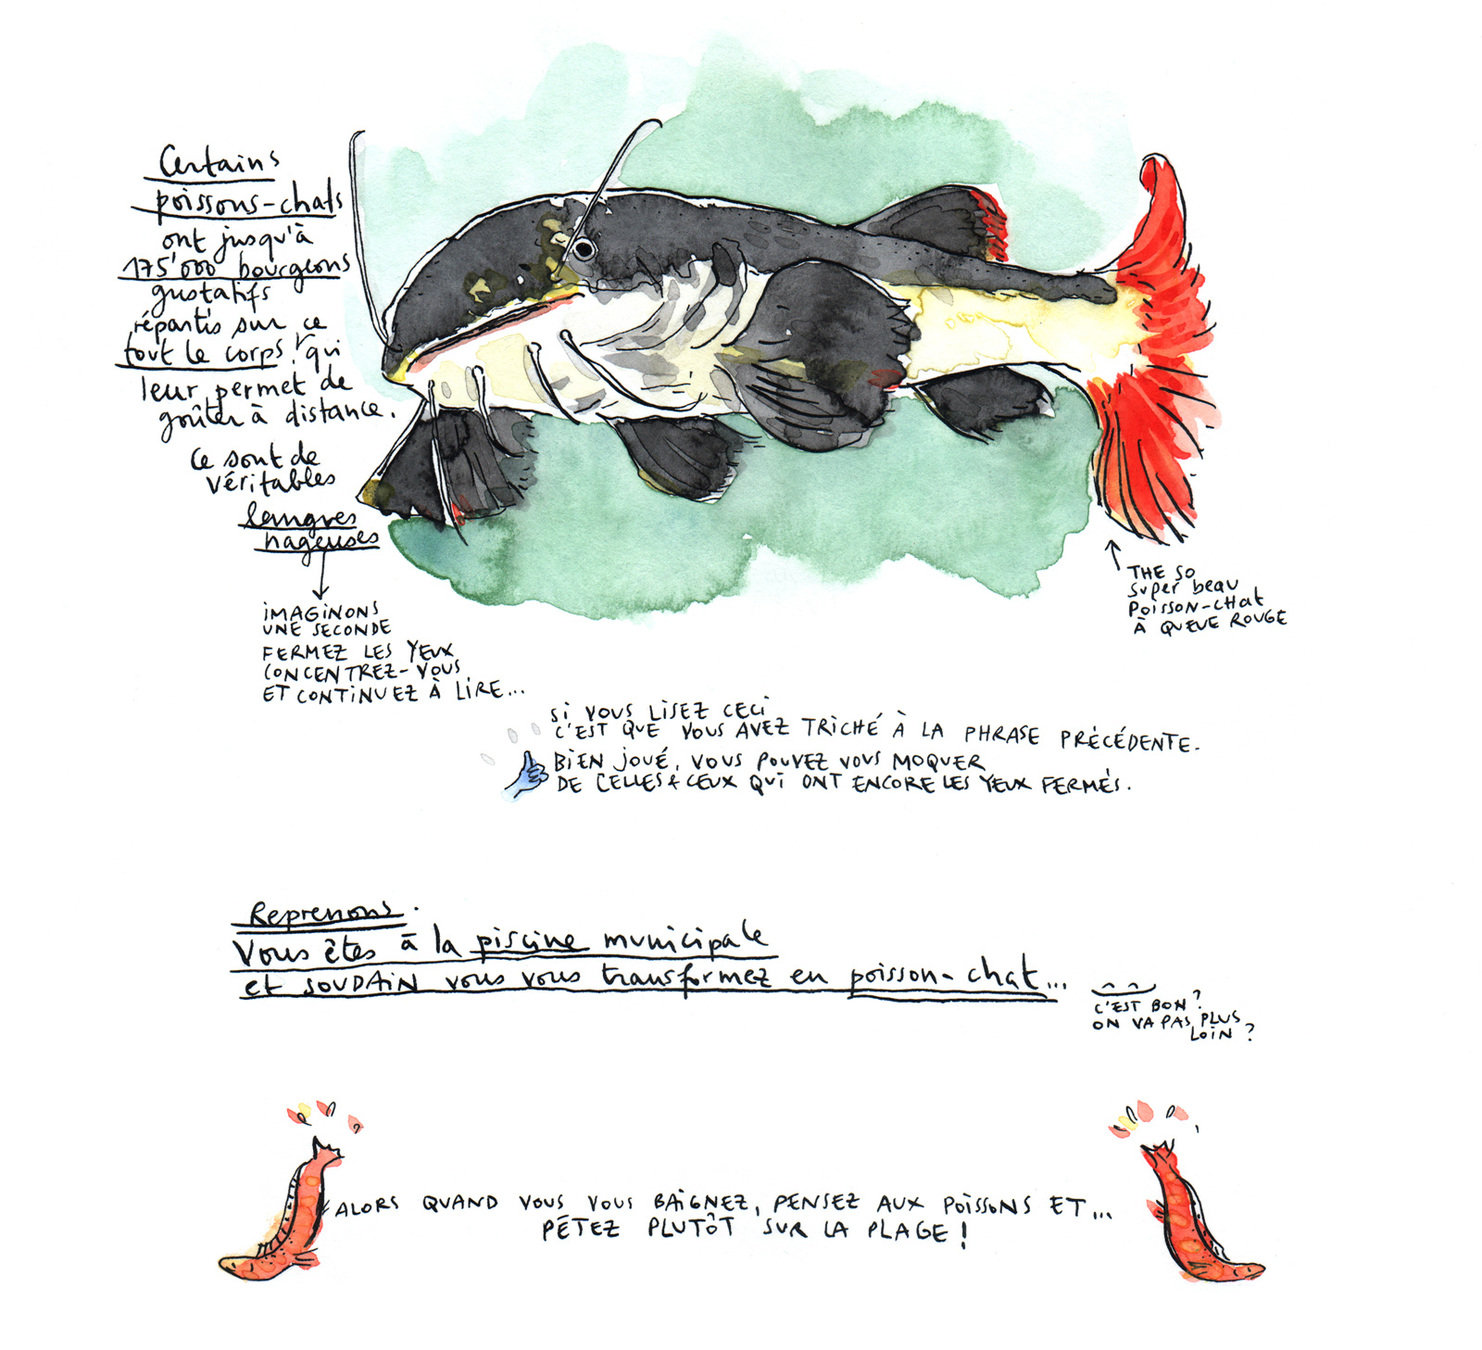 Certains
poissons-chats
ont jusqu'à
175'000 bourgeons
gustatifs
répartis sur
tout le corps, ce qui
leur permet de
goûter à distance.
Ce sont de
véritables
langues
nageuses
IMAGINONS
UNE SECONDE
FERMEZ LES YEUX
CONCENTREZ-VOUS
ET CONTINUEZ À LIRE...
THE SO
SUPER BEAU
POISSON-CHAT
À QUEUE ROUGE
SI VOUS LISEZ CECI
C'EST QUE VOUS AVEZ TRICHÉ À LA PHRASE PRÉCÉDENTE.
BIEN JOUÉ, VOUS POUVEZ VOUS MOQUER
DE CELLES + CEUX QUI ONT ENCORE LES YEUX FERMÉS.
Reprenons.
Vous êtes à la piscine municipale
et SOUDAIN vous vous transformez en poisson-chat...
C'EST BON?
ON VA PAS PLUS
LOIN?
ALORS QUAND VOUS VOUS BAIGNEZ, PENSEZ AUX POISSONS ET...
PÉTEZ PLUTÔT SUR LA PLAGE!